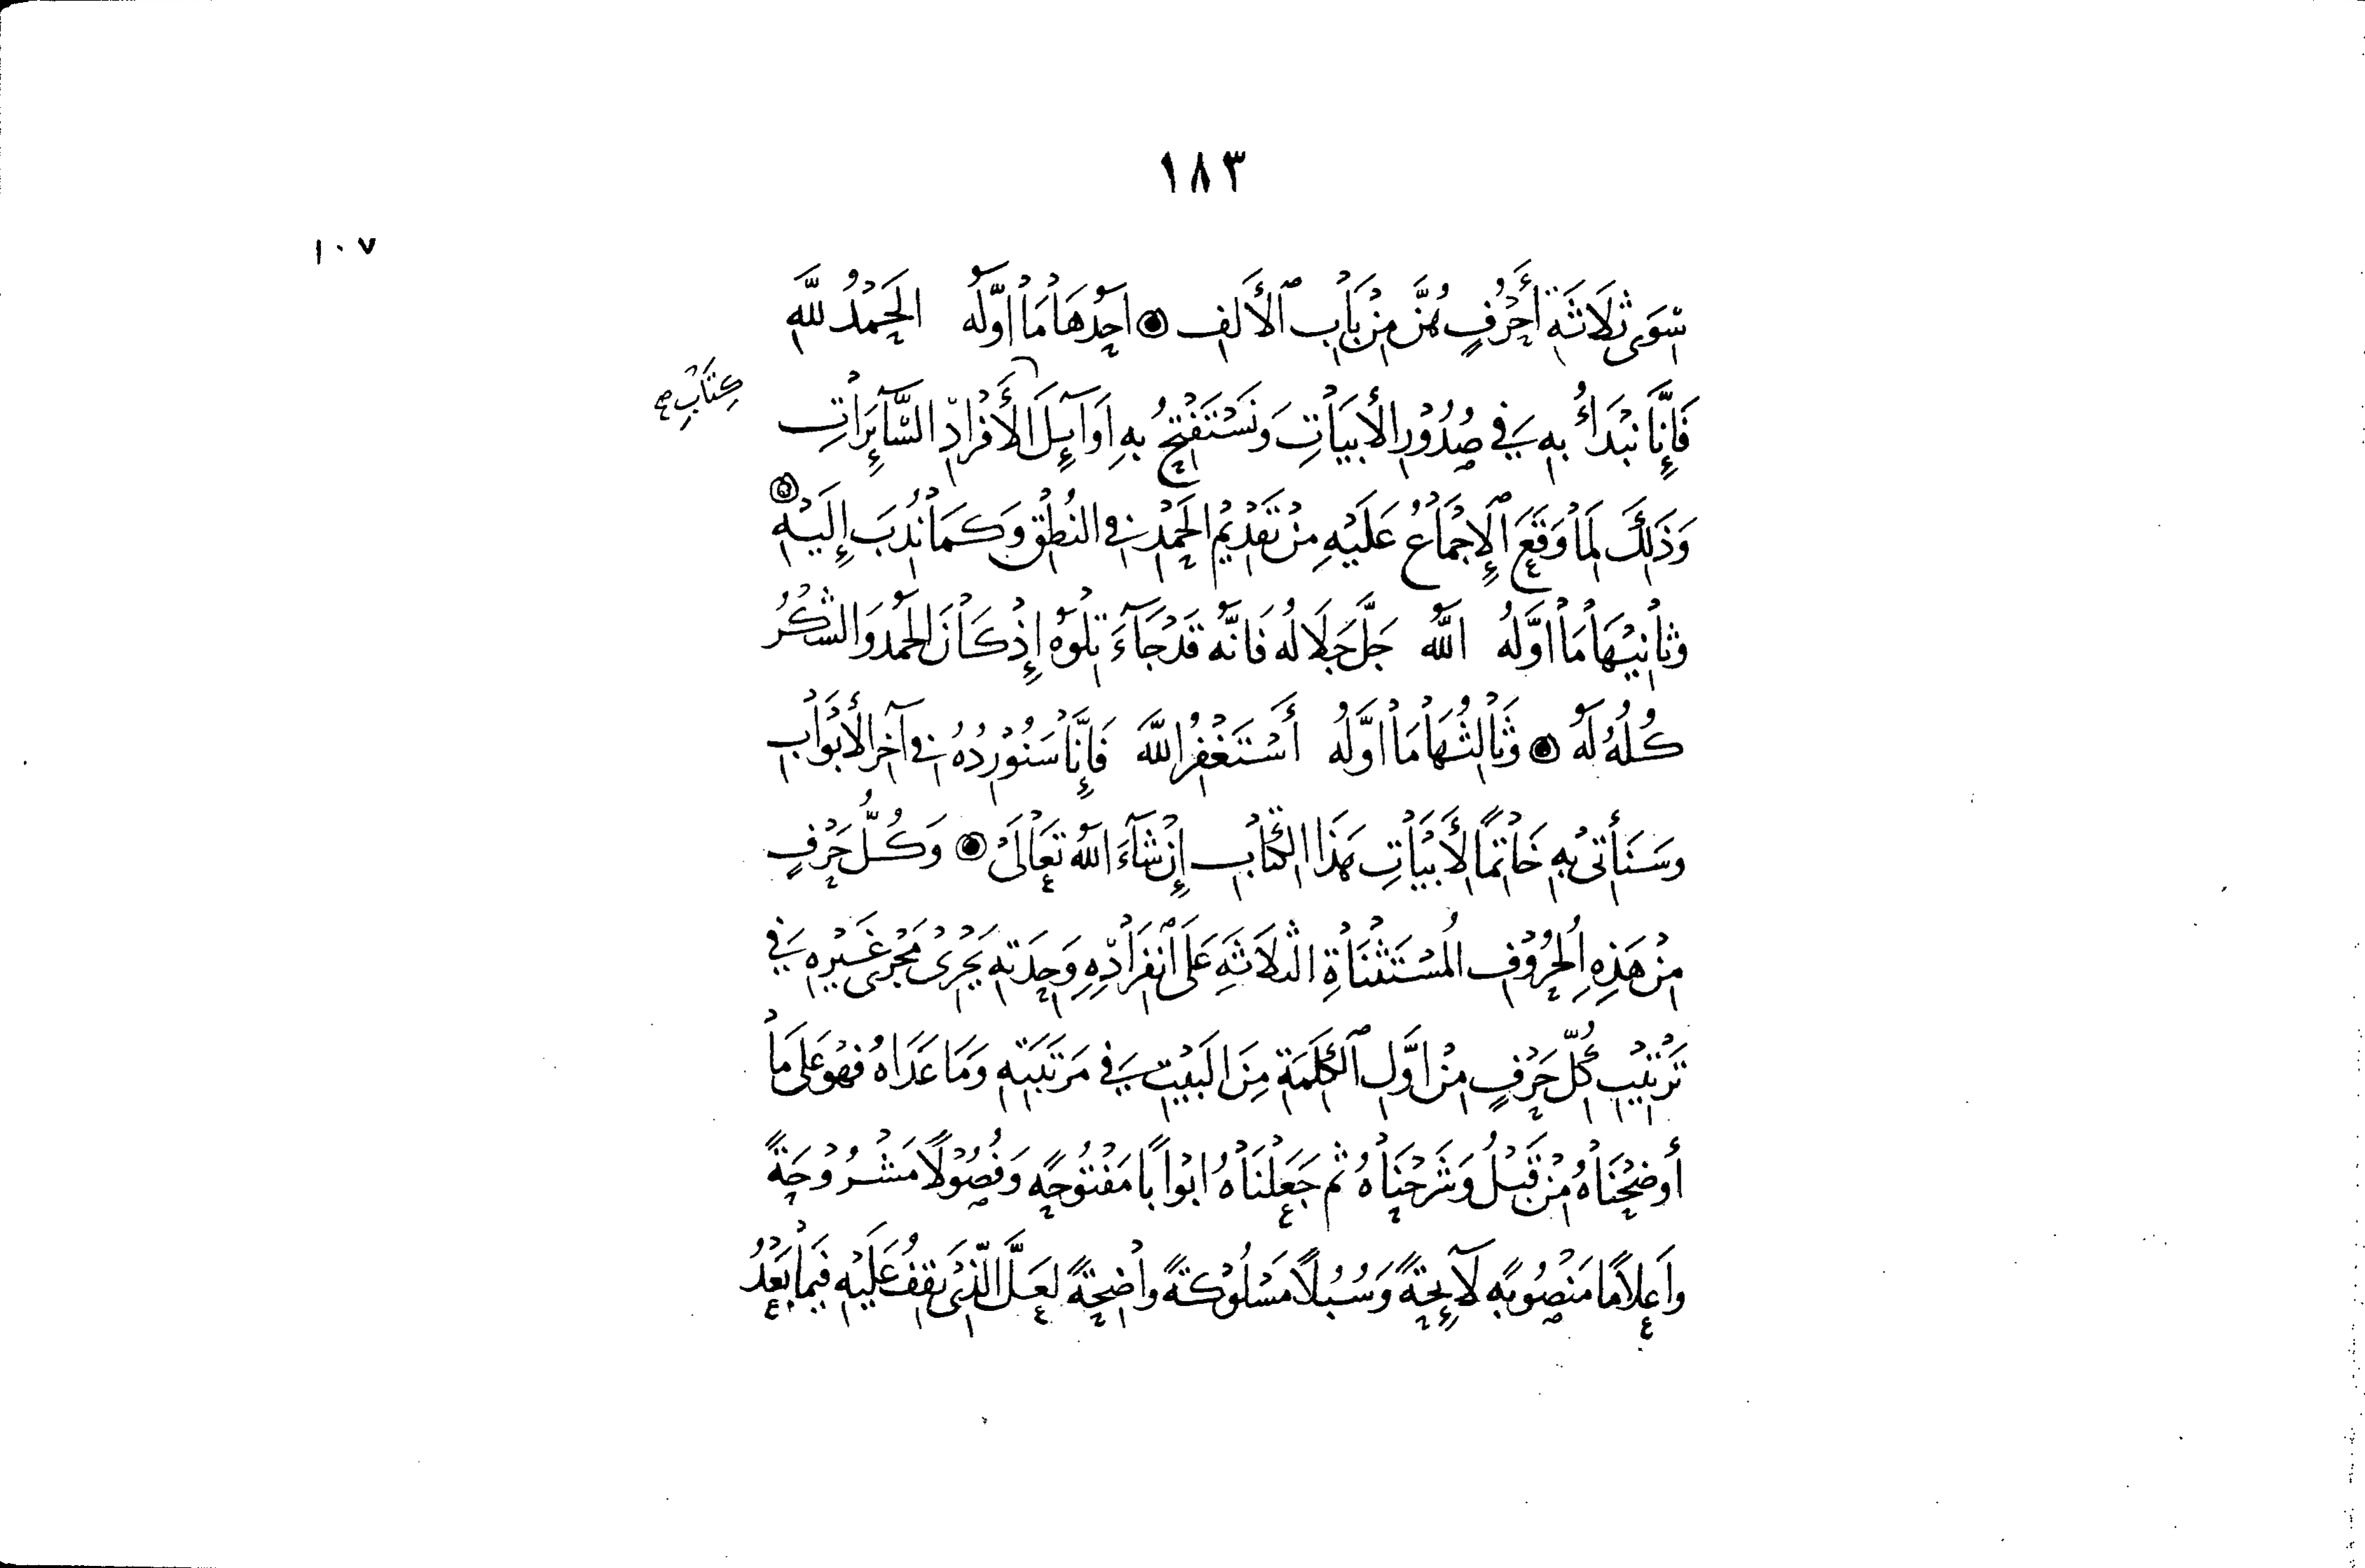 ١٨٣
١٠٧
سِوَى ثَلَاثَةِ أَحْرُفٍ هُنَّ مِنْ بَابِ ٱلْأَلِفِ ۞ احَدُهَا مَا اوَّلُه الْحَمْدُ للَّهِ
فَإِنَّا نَبْدَأُ بِهِ فِي صُدُوْرِ الأَبْيَاتِ وَنَسْتَفْتِحُ بِهِ اَوَآئِلَ الأَفْرَادِ السَّآئِرَاتِ
كِتَابِ صح
وَذَلِكَ لِمَا وَقَعَ ٱلْإِجْمَاعُ عَلَيْهِ مِنْ تَقْدِيْمِ الْحَمْدِ فِي النُطْقِ وَكَمَا نُدِبَ إِلَيْهِ ۞
وثَانِيْهَا مَا اوَّلُهُ اللّٰه جَلَّ جَلَالُه فَانَّه قَدْ جَآءَ تِلْوَه إِذْ كَانَ الحَمْدُ وَالشُّكْرُ
كُلُّهُ لَه ۞ وَثَالِثُهَا مَا اوَّلُهُ أَسْتَغْفِرُ اللَّهَ فَإِنَّا سَنُوْرِدُهُ فِي آخِرِ الأَبْوَابِ
وسَنَأتى بِهِ خَاتِمًا لأَبْيَاتِ هَذَا الكِتَابِ إِنْ شَآءَ اللّٰه تَعَالَىْ ۞ وَكُلُّ حَرْفٍ
مِنْ هَذِهِ الْحُرُوْفِ الْمُسْتَثْنَاةِ الثلَاثَةِ عَلَى ٱنْفِرَادِهِ وَحِدَتِهِ يَجْرِىْ مَجْرَى غَيْرِهِ فِي
تَرْتِيْبِ كُلِّ حَرْفٍ مِنْ اوَّلِ ٱلْكَلِمَةِ مِنَ الْبَيْتِ فِي مَرْتَبَتِهِ وَمَا عَدَاهُ فهُوَ عَلَى مَا
أَوضَحْنَاهُ مِنْ قَبْلُ وَشَرَحْنَاهُ ثُم جَعَلْنَاهُ ابْوَابًا مَفْتُوْحَةً وَفُصُوْلًا مَشْرُوْحَةً
واَعْلَامًا مَنْصُوْبَةً لَآئِحَةً وَسُبُلًا مَسْلُوْكَةً واضِحَةً لعَلَّ الَّذِىْ يَقِفُ عَلَيْهِ فِيْمَا بَعْدُ